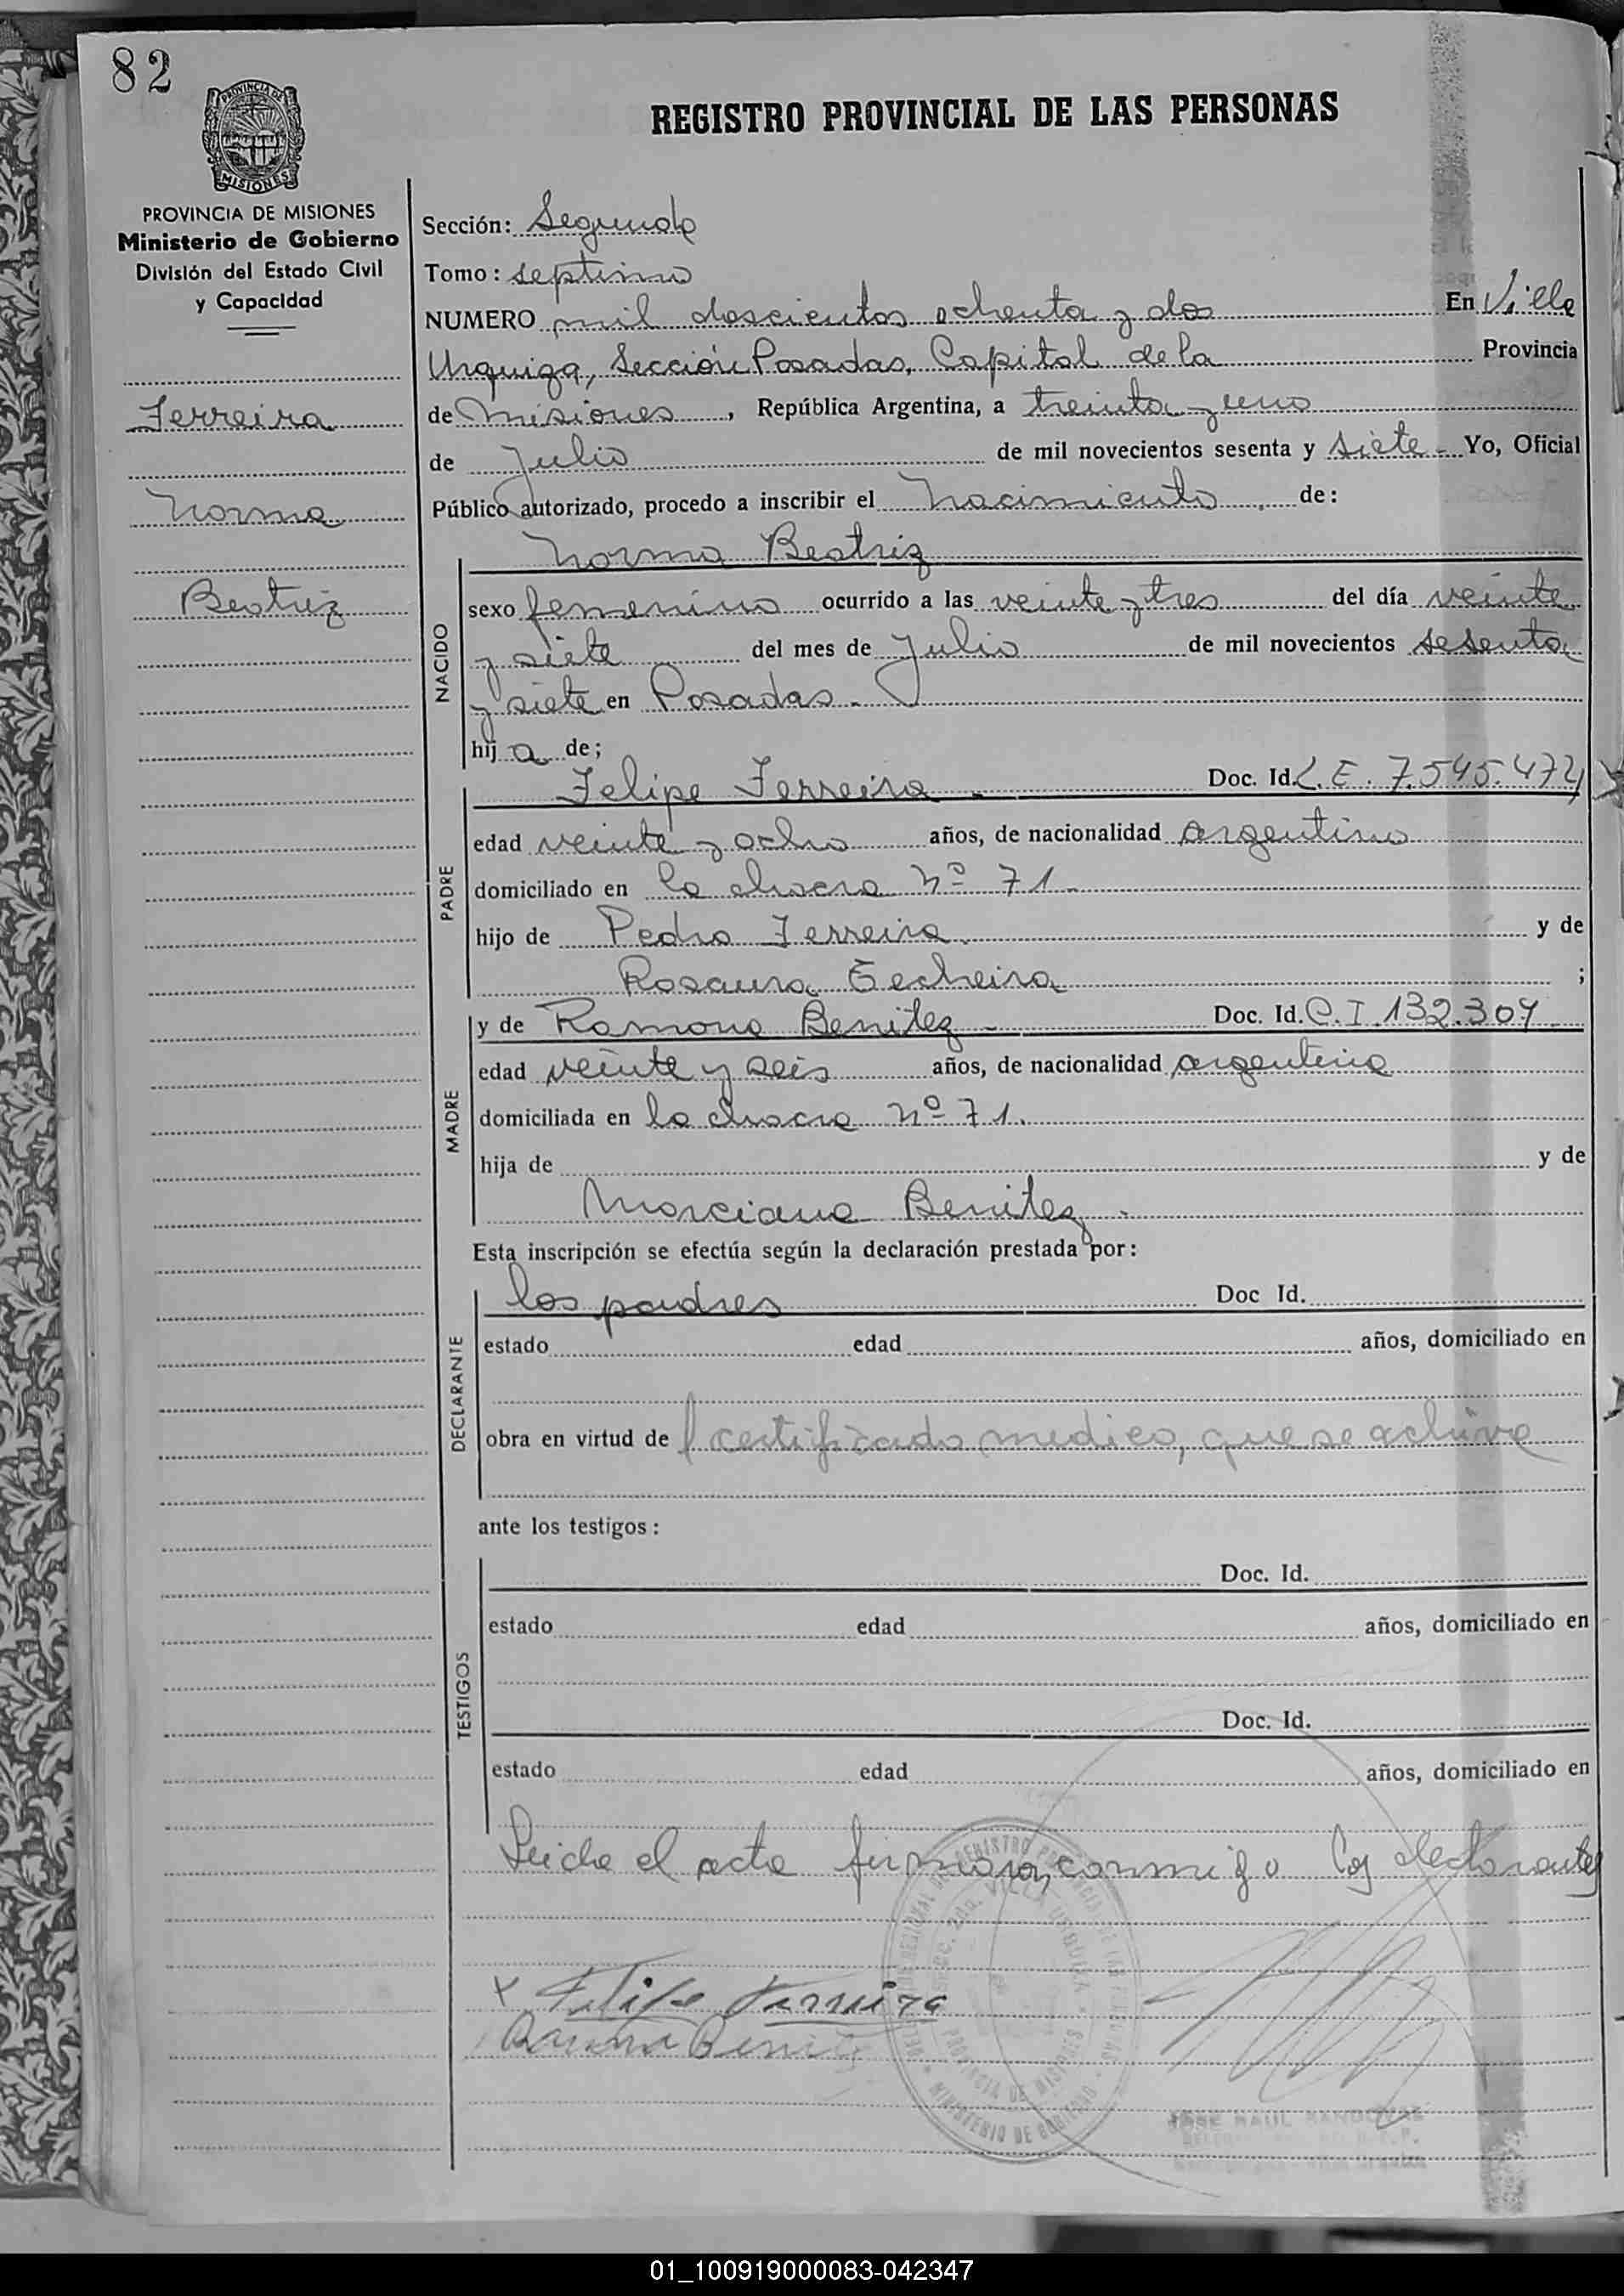 82
PROVINCIA DE
MISIONES
REGISTRO PROVINCIAL DE LAS PERSONAS
PROVINCIA DE MISIONES
Ministerio de Gobierno
División del Estado Civil
y Capacidad
Ferreira
Norma
Beatriz
Sección: Segunda
Tomo: septimo
NUMERO mil doscientos ochenta y dos En Villa
Urquiza, Sección Posadas, Capital de la Provincia
de Misiones, República Argentina, a treinta y uno
de Julio de mil novecientos sesenta y siete - Yo, Oficial
Público autorizado, procedo a inscribir el Nacimiento de:
Norma Beatriz
NACIDO
sexo femenino ocurrido a las veinte y tres del día veinte
y siete del mes de Julio de mil novecientos sesenta
y siete en Posadas -
hija de;
PADRE
Felipe Ferreira - Doc. Id. L.E. 7.545.472
edad veinte y ocho años, de nacionalidad argentino
domiciliado en la chacra Nº 71 -
hijo de Pedro Ferreira y de
Rosaura Echeira ;
MADRE
y de Ramona Benitez - Doc. Id. C.I. 132.307
edad veinte y seis años, de nacionalidad argentina
domiciliada en la chacra nº 71.
hija de y de
Marciana Benitez -
Esta inscripción se efectúa según la declaración prestada por:
DECLARANTE
los padres Doc Id.
estado edad años, domiciliado en
obra en virtud de l certificado medico, que se archiva
ante los testigos:
TESTIGOS
Doc. Id.
estado edad años, domiciliado en
Doc. Id.
estado edad años, domiciliado en
Leida el acta firmaron conmigo los declarantes
x Felipe Ferreira
Ramona Benitez
REGISTRO PROVINCIAL DE LAS PERSONAS
VILLA URQUIZA
PROVINCIA DE MISIONES
MINISTERIO DE GOBIERNO
JOSE RAUL SANDOVAL
01_100919000083-042347